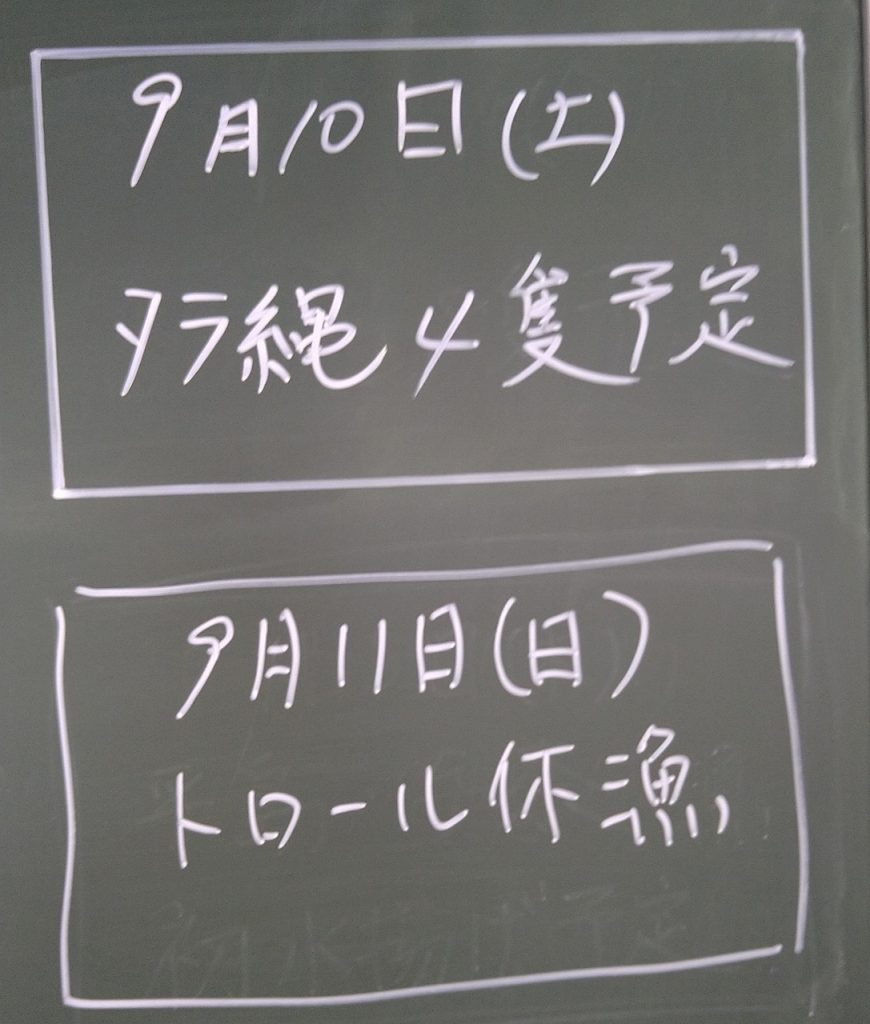 9月10日(土)
タラ縄4隻予定
9月11日(日)
トロール休漁
初水揚げ予定